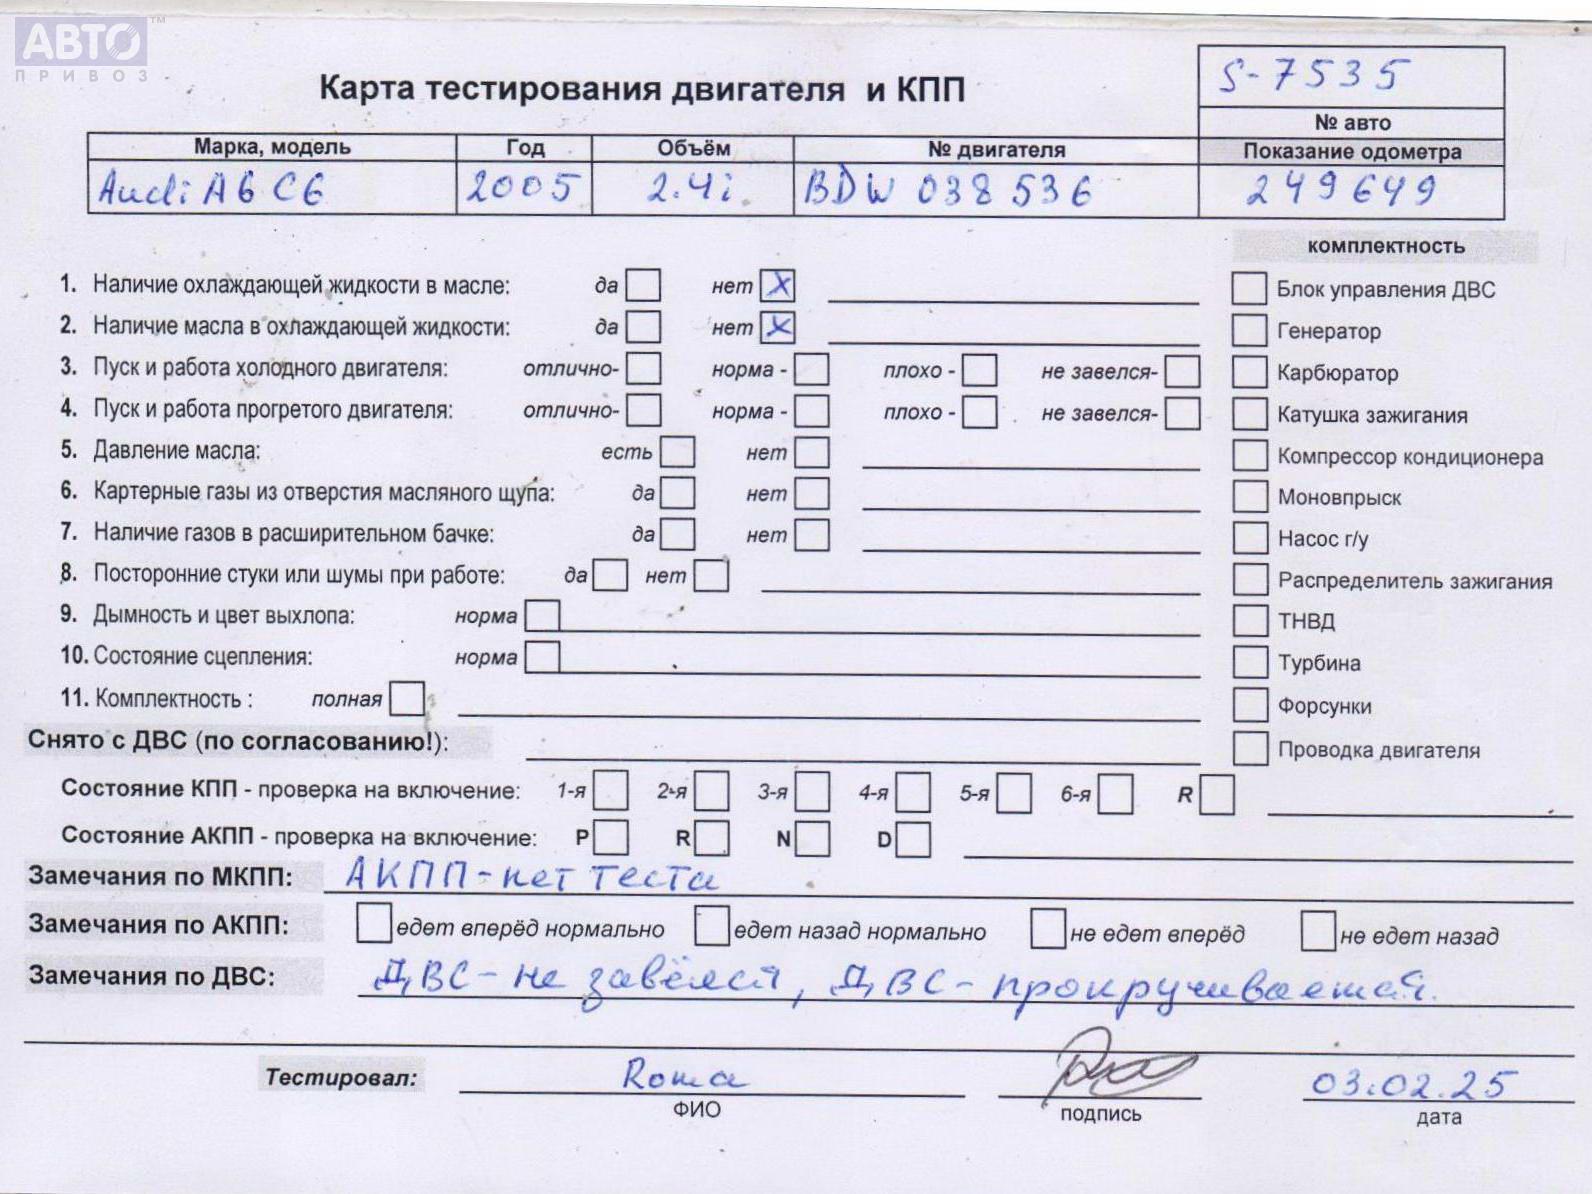 АВТО ТМ
ПРИВОЗ
Карта тестирования двигателя и КПП
S-7535
№ авто
Марка, модель Год Объём № двигателя Показание одометра
Audi A6 C6 2005 2.4i BDW 038536 249649
комплектность
1. Наличие охлаждающей жидкости в масле: да нет X
Блок управления ДВС
2. Наличие масла в охлаждающей жидкости: да нет X
Генератор
3. Пуск и работа холодного двигателя: отлично- норма - плохо - не завелся-
Карбюратор
4. Пуск и работа прогретого двигателя: отлично- норма - плохо - не завелся-
Катушка зажигания
5. Давление масла: есть нет
Компрессор кондиционера
6. Картерные газы из отверстия масляного щупа: да нет
Моновпрыск
7. Наличие газов в расширительном бачке: да нет
Насос г/у
8. Посторонние стуки или шумы при работе: да нет
Распределитель зажигания
9. Дымность и цвет выхлопа: норма
ТНВД
10. Состояние сцепления: норма
Турбина
11. Комплектность : полная
Форсунки
Снято с ДВС (по согласованию!):
Проводка двигателя
Состояние КПП - проверка на включение: 1-я 2-я 3-я 4-я 5-я 6-я R
Состояние АКПП - проверка на включение: P R N D
Замечания по МКПП: АКПП-нет теста
Замечания по АКПП: едет вперёд нормально едет назад нормально не едет вперёд не едет назад
Замечания по ДВС: ДВС-не завёлся, ДВС-прокручивается.
Тестировал: Рома 03.02.25
ФИО подпись дата